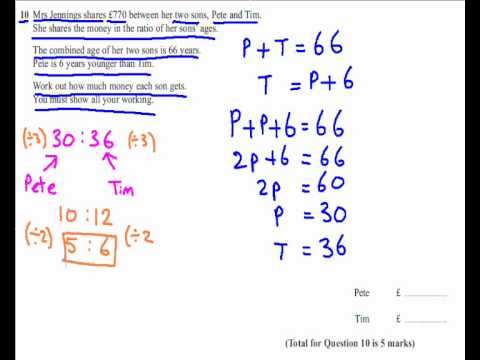 10 Mrs Jennings shares £770 between her two sons, Pete and Tim.
She shares the money in the ratio of her sons' ages.
The combined age of her two sons is 66 years.
Pete is 6 years younger than Tim.
Work out how much money each son gets.
You must show all your working.
(÷3) 30 : 36 (÷3)
Pete Tim
10 : 12
(÷2) 5 : 6 (÷2
P + T = 66
T = P + 6
P + P + 6 = 66
2P + 6 = 66
2P = 60
P = 30
T = 36
Pete £
Tim £
(Total for Question 10 is 5 marks)